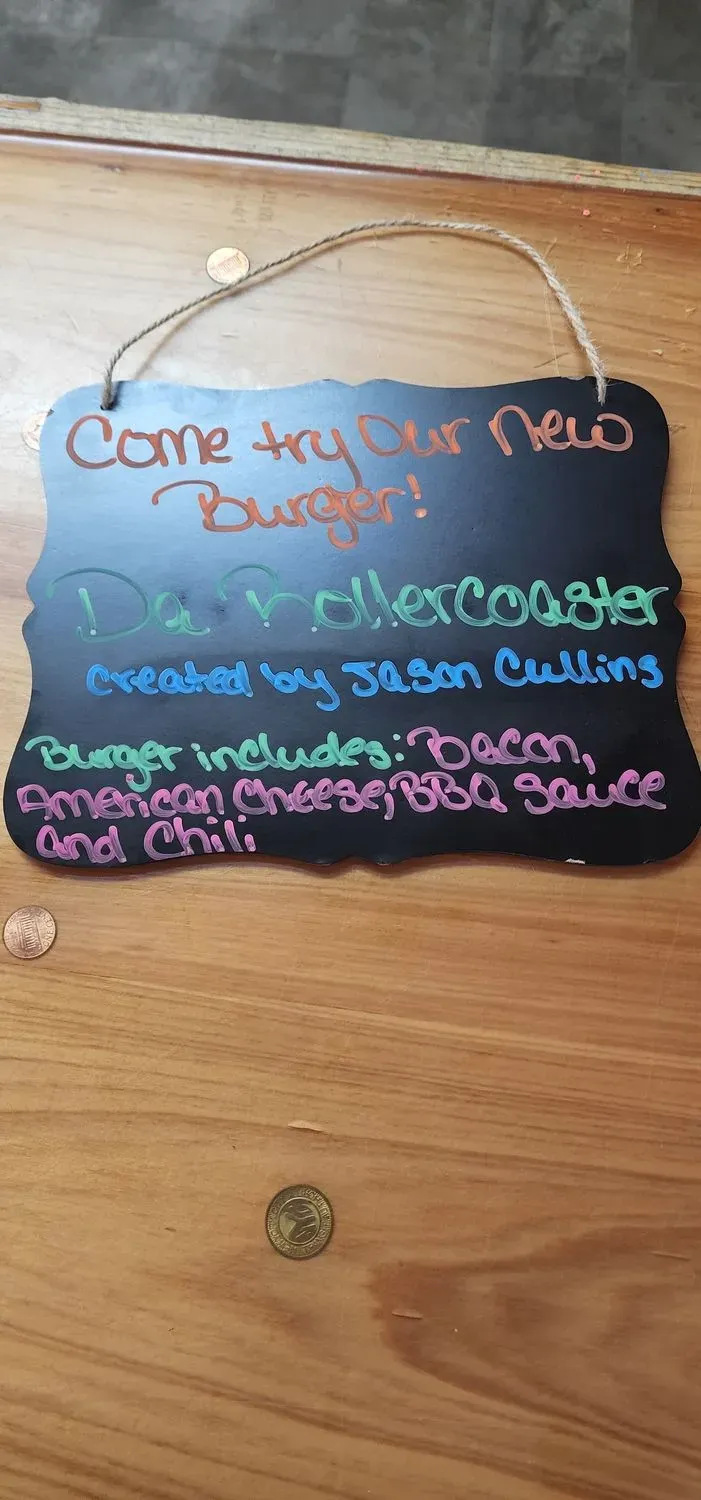 Come try Our New
Burger!
Da Rollercoaster
created by Jason Cullins
Burger includes: Bacon,
American Cheese, BBQ Sauce
and Chili